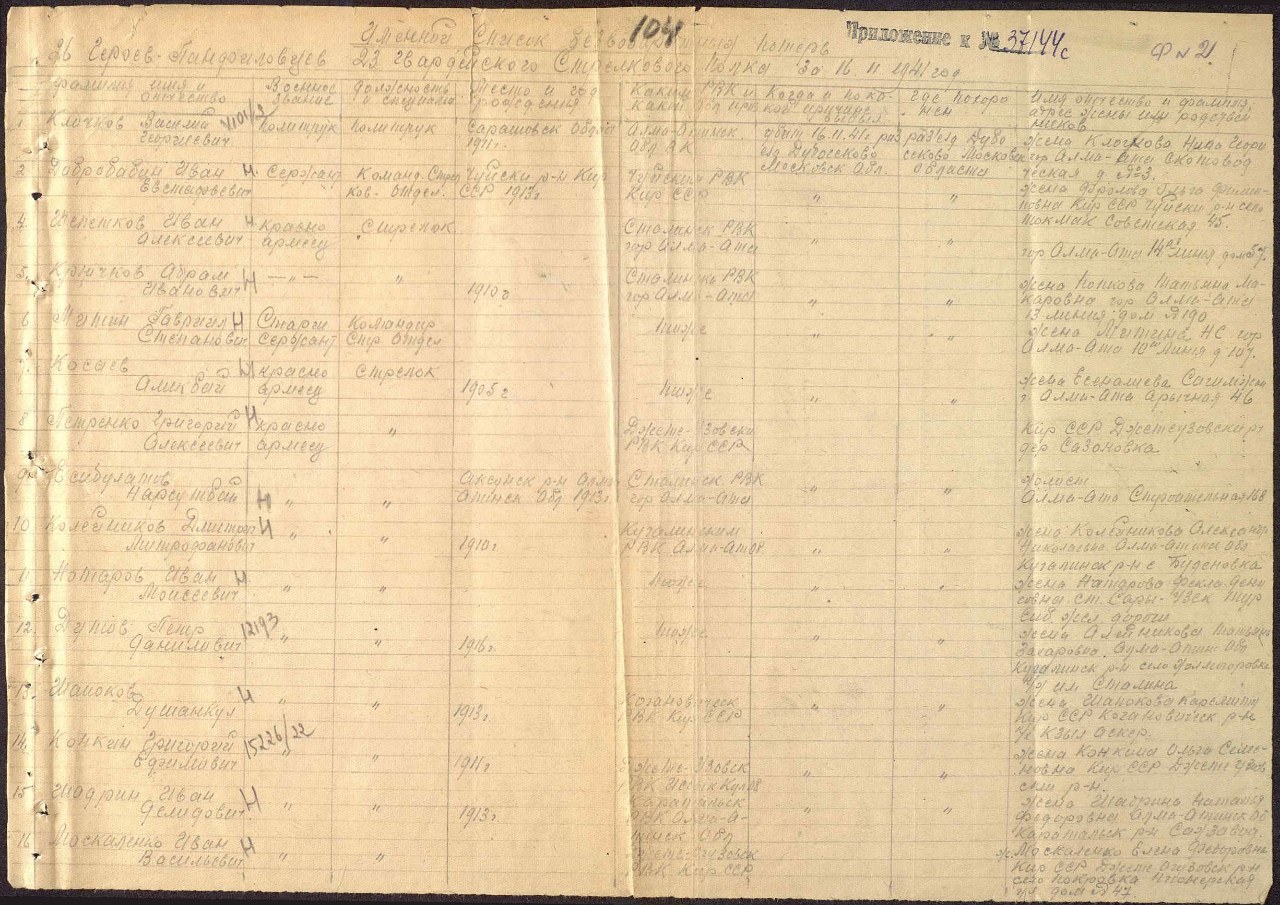 104
Приложение к № 37144с
Ф № 21
Именной Список безвозвратных потерь
Героев-Панфиловцев 23 Гвардейского Стрелкового полка за 16.11.1941 год
Фамилия имя и отчество
Военное звание
Должность и специальн
Место и год рождения
Каким РВК и какой обл призв
Когда и по какой причине выбыл
Где похоронен
Имя отчество и фамилия, адрес жены или родственников
1 Клочков Василий Георгиевич
Политрук
Политрук
Саратовск Области 1911г.
Алма-Атинск. Обл ВК
убит 16.11.41г раз езд Дубосеково Московск Обл.
раз'езд Дубосеково Московск области
жена Клочкова Нина Георги гор Алма-Ата Скотоводческая д №23.
2 Добробабин Иван Н Евстафьевич
Сержант
Команд. Стрелков. Отдел.
Чуйски р-н Кир ССР 1913г
Чуйский РВК Кир ССР
"
"
жена Фролова Ольга Филиповна Кир ССР Чуйски р-н село Токмак Советская 45.
4. Шепетков Иван Н Алексеевич
Красноармеец
Стрелок
Сталинск РВК гор Алма-Ата
"
"
гор Алма-Ата 14ая линия дом 57.
5. Крючков Абрам Н Иванович
— " —
"
1910г
Сталинск РВК гор Алма-Ата
"
"
жена Попкова Татьяна Макаровна гор Алма-Ата 13 линия дом №190
6 Митин Гавриил Н Степанович
Старши Сержант
Командир Стр Отдел
тоже
"
"
жена Митина НС гор Алма-Ата 10ая Линия д 107.
7. Косаев Н Аликбай
красноармеец
Стрелок
1905г
тоже
"
"
жена Есеналиева г. Алма-Ата Арычная 46
8 Петренко Григорий Н Алексеевич
красноармеец
"
Джете-Узовски РВК Кир ССР
"
"
Кир ССР Джетеузовски р-н дер Сазоновка
9. Есибулатов Нарсутбай Н
"
"
Аксинск р-н Алма-Атинск Обл 1913г
Сталинск РВК гор Алма-Ата
"
"
холост Алма-Ата Строительная 168
10 Калейников Дмитрий Н Митрофанович
"
"
1910г
Кугалинским РВК Алма-Ат Об
"
"
жена Калейникова Александр Николаевна Алма-Атинск Обл Кугалинск р-н с Буденовка
11 Натаров Иван Н Моисеевич
"
"
тоже
"
"
жена Натарова Фекла Денисовна ст. Сары-Узек Тур Сиб жел дороги
12. Дутов Петр 12193 Данилович
"
"
1916г
тоже
"
"
жена Алейникова Татьяна Захаровна Алма-Атинс Обл Кугалинск р-н село к/х им Сталина
13. Шапоков Н Душанкул
"
"
1913г
Коганавическ РВК Кир ССР
"
"
жена Шапокова Кир ССР Коганавическ р-н к/с Кзыл Аскер.
14. Конкин Григорий 15226/22 Ефимович
"
"
1911г
Джете-Узовск РВК Иссык Кул Об
"
"
жена Конкина Ольга Семеновна Кир ССР Джети Узовски р-н.
15 Шадрин Иван Н Демидович
"
"
1913г
Караталык РВК Алма-Атинск Обл
"
"
жена Шадрина Наталья Федоровна Алма-Атинск Об Караталык р-н Сахзавод.
16 Москаленко Иван Н Васильевич
"
"
РВК Кир ССР
"
"
ж. Москаленко Елена Федоровна Кир ССР р-н село Покровка Пионерская ул. дом №47